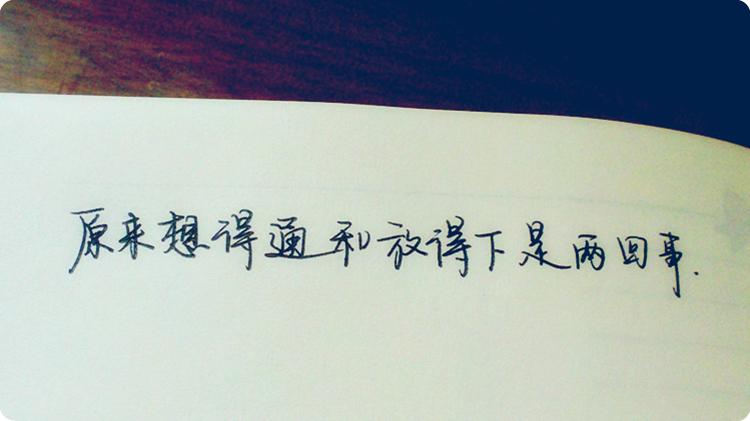 原来想得通和放得下是两回事.